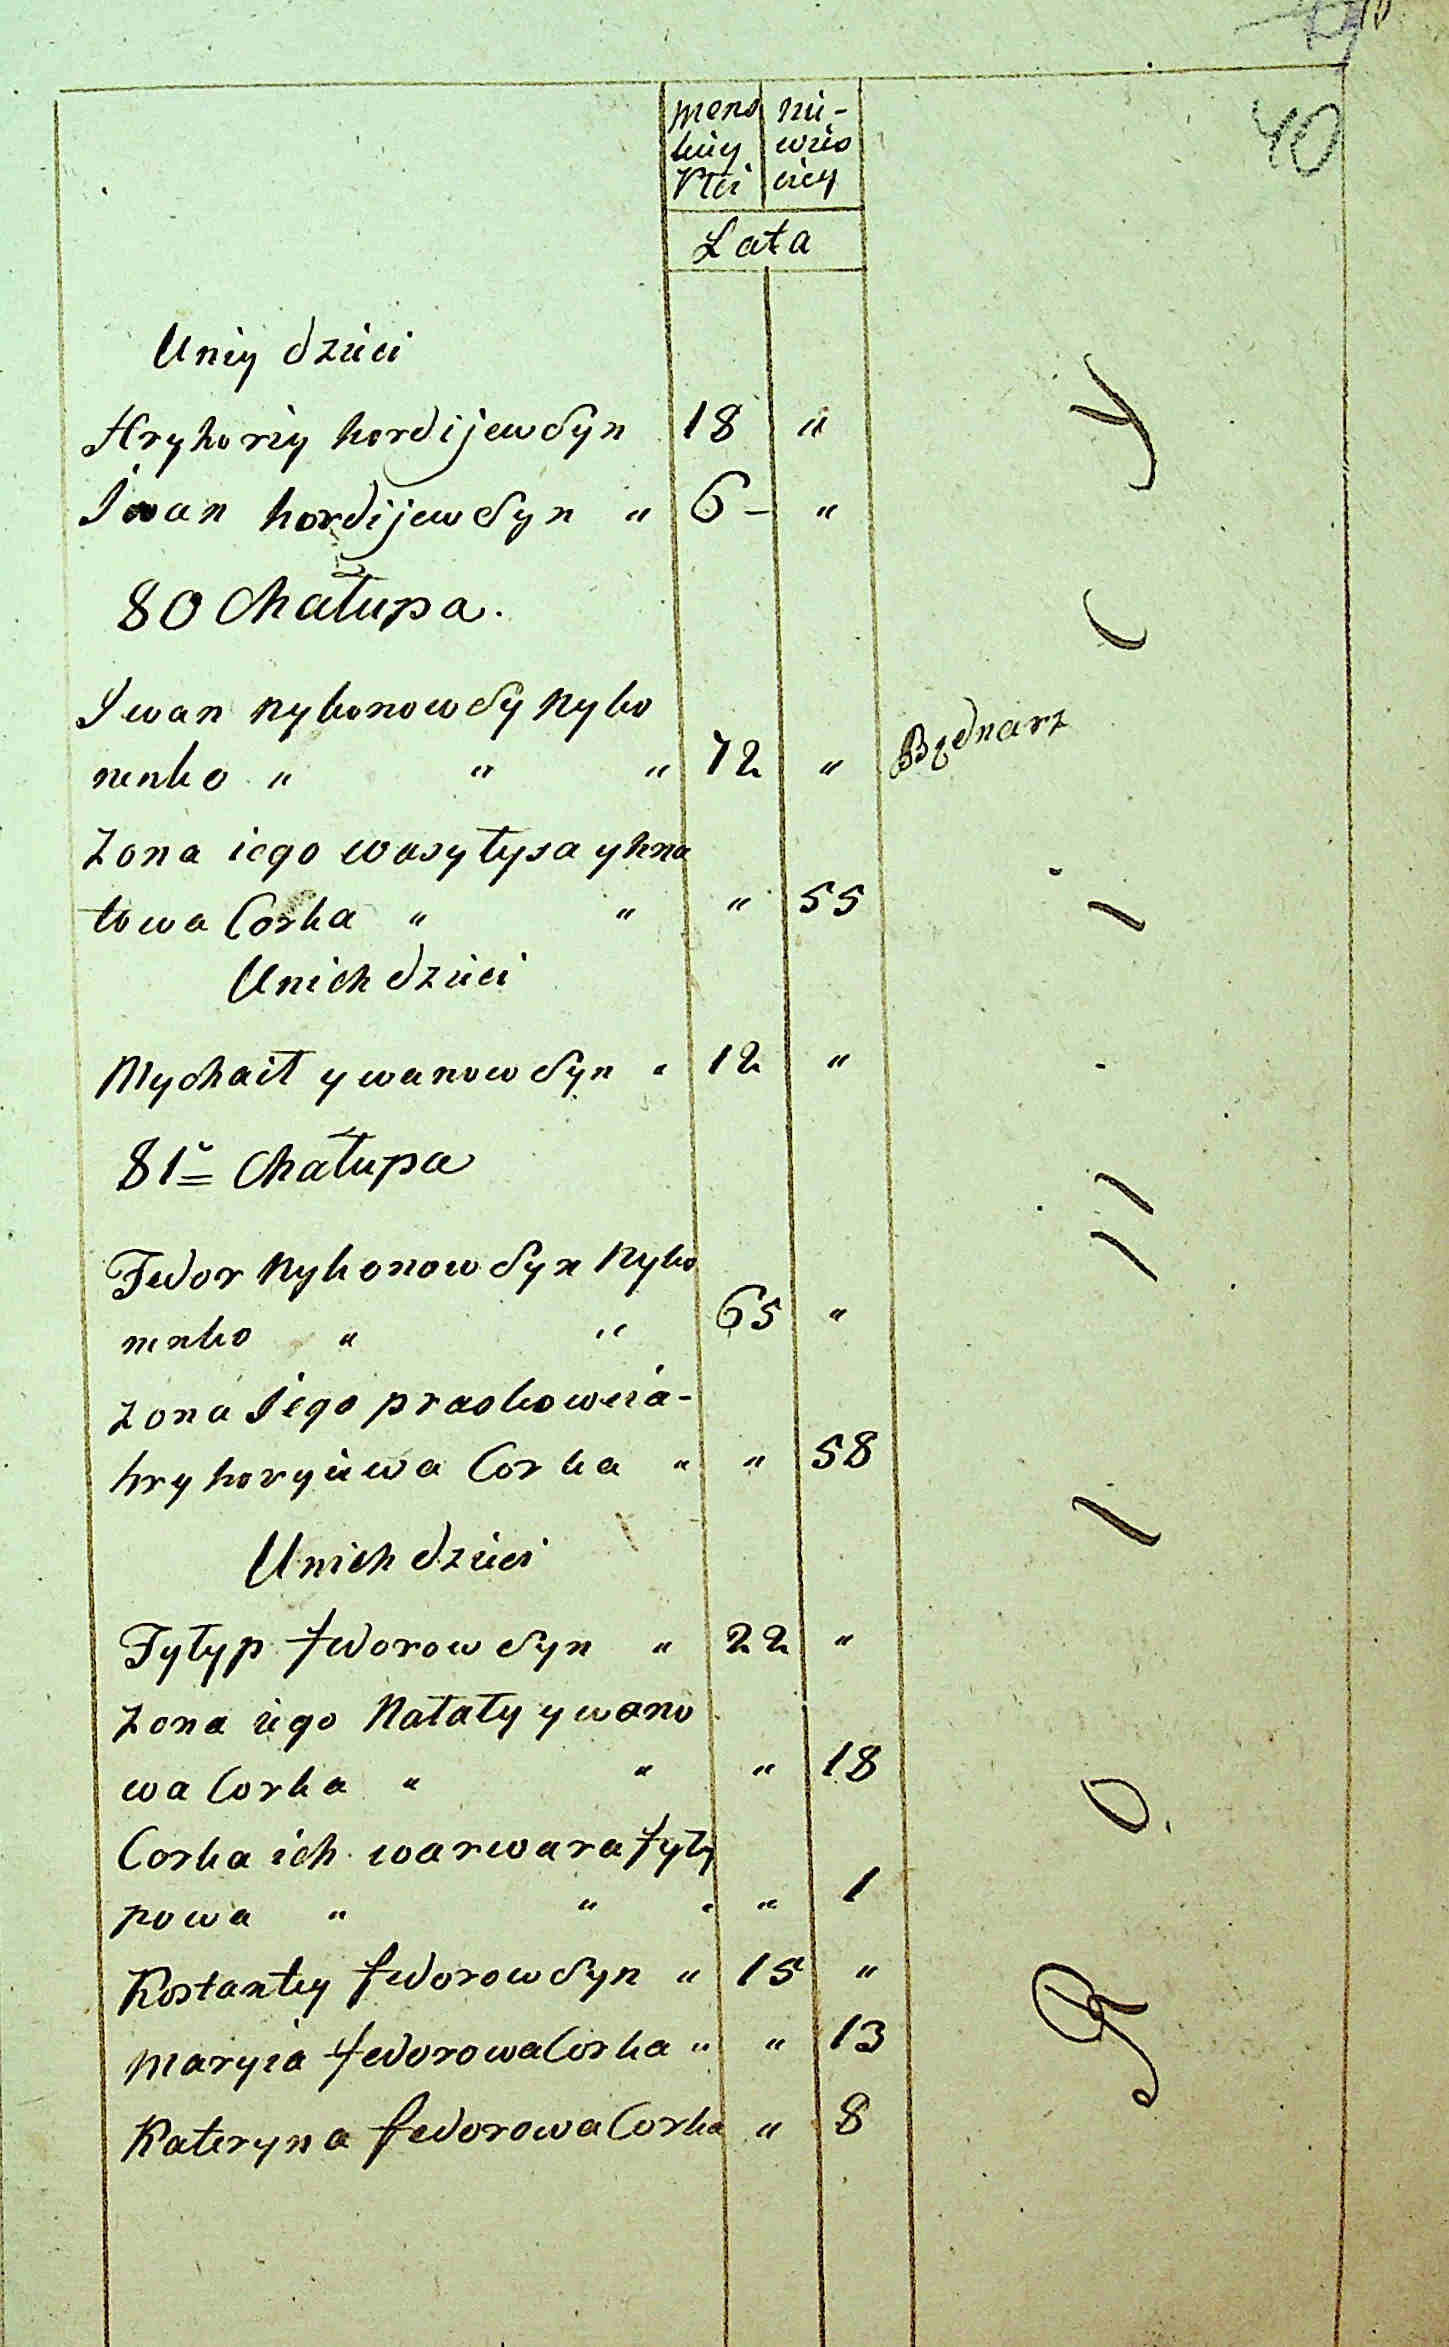 40
mens nie-
kiey wieś
Płci ciey
Lata
Uniey dzieci
Hryhoriy hordijew Syn 18 "
Iwan hordijew Syn " 6 - "
80 Chałupa.
Iwan Nykonow Sy Nyko
nenko " " " 72 " Będnarz
Zona iego wasyłysa yhna
towa Corka " " " 55
Unich dzieci
Mychaił ywanow Syn " 12 "
81 = Chałupa
Fedor Nykonow Syn Nyko
nenko " " 65 "
Zona Iego praskoweia-
hryhoryiewa Corka " " 58
Unich dzieci
Fyłyp fedorow Syn " 22 "
Zona iego Natały ywano
wa Corka " " " 18
Corka ich warwara fyły
powa " " " " 1
Kostantey fedorow Syn " 15 "
Maryia fedorowa Corka " " 13
Kateryna fedorowa Corka " 8